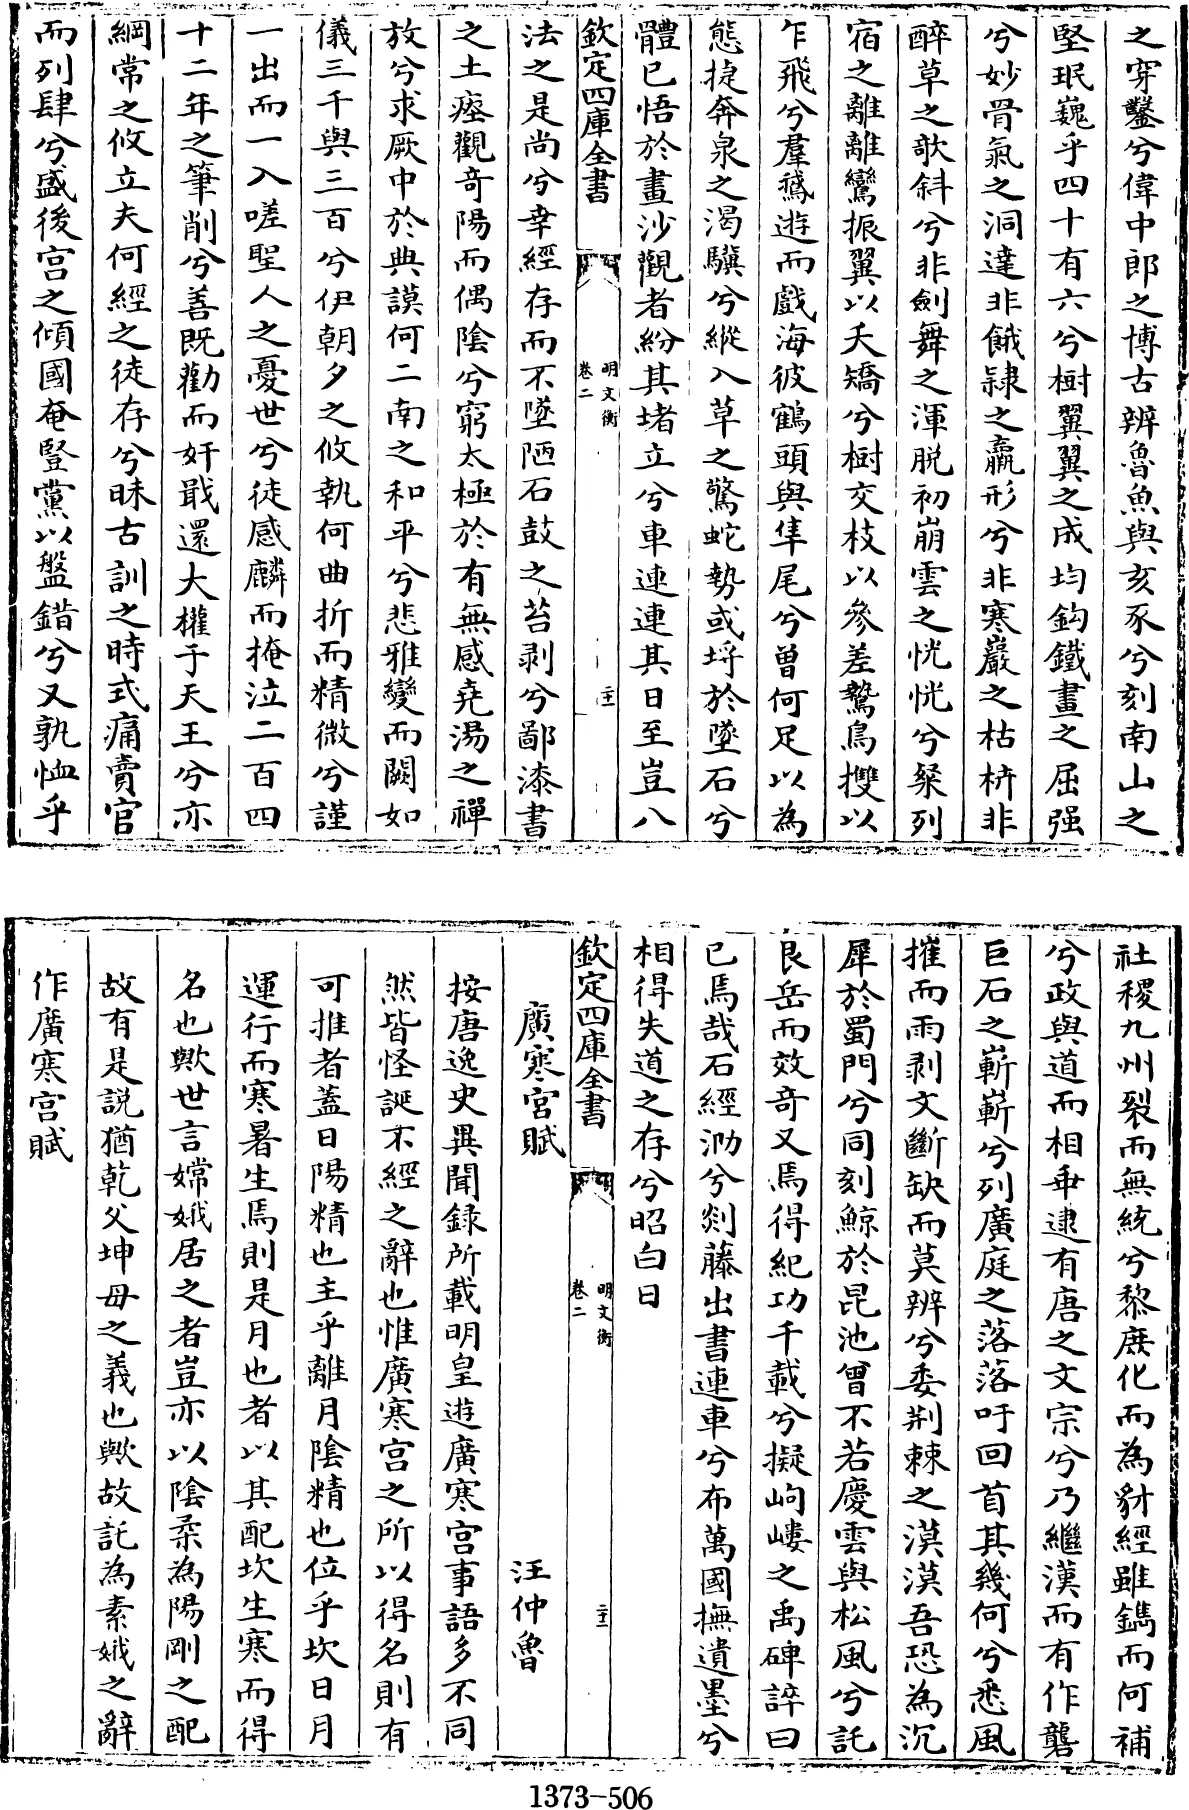 之穿鑿兮偉中郎之博古辨魯魚與亥豕兮刻南山之
堅珉巍乎四十有六兮樹翼翼之成均鈎鐵畫之屈强
兮妙骨氣之洞達非餓隸之羸形兮非寒巖之枯枿非
醉草之欹斜兮非劍舞之渾脱初崩雲之恍恍兮粲列
宿之離離鸞振翼以夭矯兮樹交枝以參差鷙鳥攫以
乍飛兮羣鵞遊而戲海彼鶴頭與隼尾兮曾何足以為
態捷奔泉之渴驥兮縱入草之驚蛇勢或埒於墜石兮
體已悟於畫沙觀者紛其堵立兮車連連其日至豈八
欽定四庫全書
明文衡
卷二
二十
法之是尚兮幸經存而不墜陋石鼓之苔剥兮鄙漆書
之土瘞觀奇陽而偶隂兮窮太極於有無感堯湯之禪
放兮求厥中於典謨何二南之和平兮悲雅變而闕如
儀三千與三百兮伊朝夕之攸執何曲折而精微兮謹
一出而一入嗟聖人之憂世兮徒感麟而掩泣二百四
十二年之筆削兮善既勸而奸戢還大權于天王兮亦
綱常之攸立夫何經之徒存兮昧古訓之時式痛賣官
而列肆兮盛後宫之傾國奄豎黨以盤錯兮又孰恤乎
社稷九州裂而無統兮黎庶化而為豺經雖鐫而何補
兮政與道而相乖逮有唐之文宗兮乃繼漢而有作礱
巨石之嶄嶄兮列廣庭之落落吁回首其幾何兮悉風
摧而雨剥文斷缺而莫辨兮委荆棘之漠漠吾恐為沉
犀於蜀門兮同刻鯨於昆池曾不若慶雲與松風兮託
艮岳而效奇又焉得紀功千載兮擬岣嶁之禹碑誶曰
已焉哉石經泐兮剡藤出書連車兮布萬國撫遺墨兮
相得失道之存兮昭白日
欽定四庫全書
明文衡
卷二
二十一
廣寒宫賦 汪仲魯
按唐逸史異聞録所載明皇遊廣寒宫事語多不同
然皆怪誕不經之辭也惟廣寒宫之所以得名則有
可推者蓋日陽精也主乎離月隂精也位乎坎日月
運行而寒暑生焉則是月也者以其配坎生寒而得
名也歟世言嫦娥居之者豈亦以隂柔為陽剛之配
故有是説猶乾父坤母之義也歟故託為素娥之辭
作廣寒宫賦
1373-506